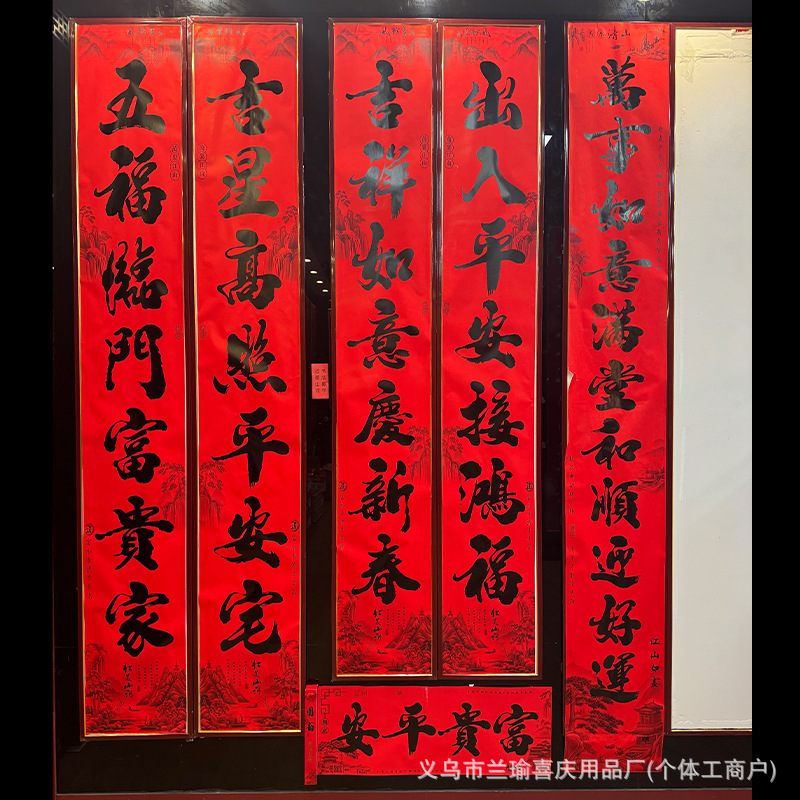 吉星高照平安宅
五福臨門富貴家
出入平安接鴻福
吉祥如意慶新春
萬事如意满堂和順迎好運
江山如画
富貴平安
义乌市兰瑜喜庆用品厂(个体工商户)